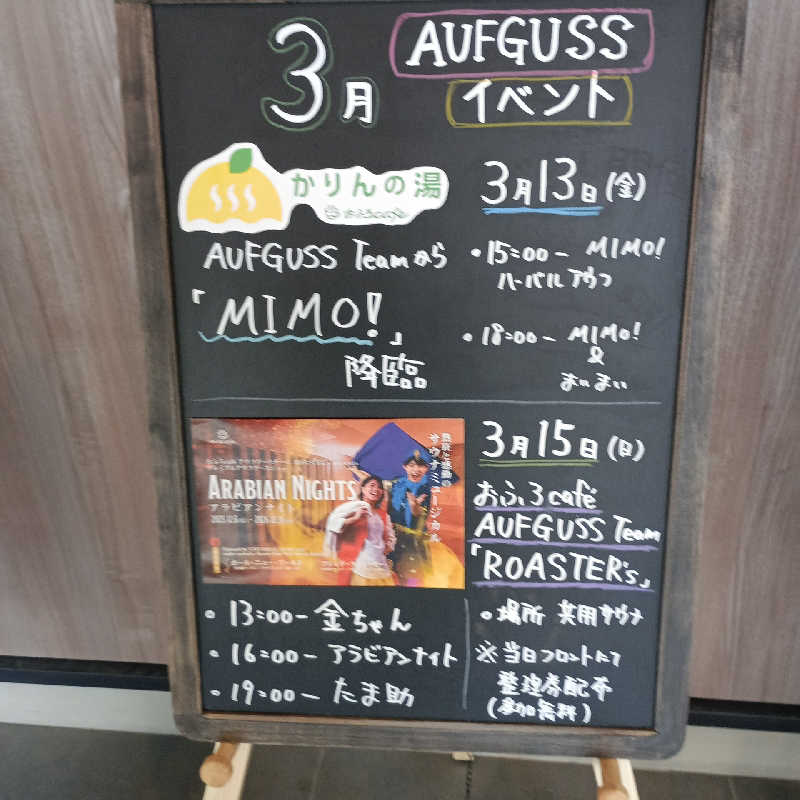 3月
AUFGUSS
イベント
かりんの湯
おふろcafé
AUFGUSS Teamから
「MIMO!」
降臨
3月13日(金)
・15:00- MIMO!
ハーバルアウフ
・18:00- MIMO!
&
まいまい
ARABIAN NIGHTS
アラビアンナイト
サウナミュージカル
3月15日(日)
おふろcafé
AUFGUSS Team
「ROASTER's」
・13:00-金ちゃん
・16:00-アラビアンナイト
・19:00-たま助
・場所 共用サウナ
※当日フロントにて
整理券配布
(参加無料)